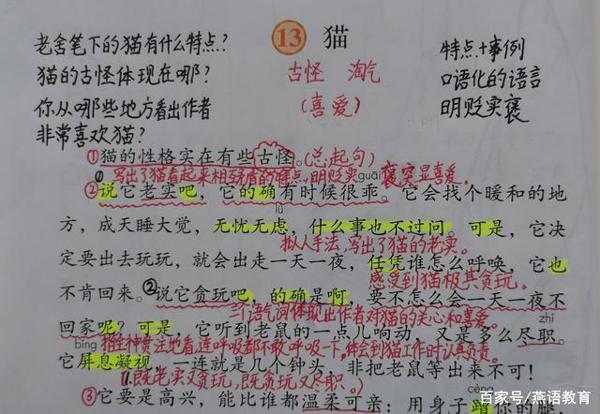 老舍笔下的猫有什么特点？
猫的古怪体现在哪？
你从哪些地方看出作者
非常喜欢猫？
13 猫
古怪 淘气
（喜爱）
特点+事例
口语化的语言
明贬实褒
①猫的性格实在有些古怪。（总起句）
①写出了猫看起来相互矛盾的特点，明贬实褒，突显喜爱。
guāi
②说它老实吧，它的确有时候很乖。它会找个暖和的地
lǜ
方，成天睡大觉，无忧无虑，什么事也不过问。可是，它决
拟人手法，写出了猫的老实。
定要出去玩玩，就会出走一天一夜，任凭谁怎么呼唤，它也
感受到猫极其贪玩。
不肯回来。②说它贪玩吧，的确是啊，要不怎么会一天一夜不
三个语气词体现出作者对猫的关心和喜爱。
zhí
回家呢？可是，它听到老鼠的一点儿响动，又是多么尽职。
bǐng
猫全神贯注地看，连呼吸都不敢呼吸一下，体会到猫工作时认真负责。
它屏息凝视，一连就是几个钟头，非把老鼠等出来不可！
（既老实又贪玩，既贪玩又尽职。）
cèng
③它要是高兴，能比谁都温柔可亲：用身子蹭你的腿
百家号/燕语教育